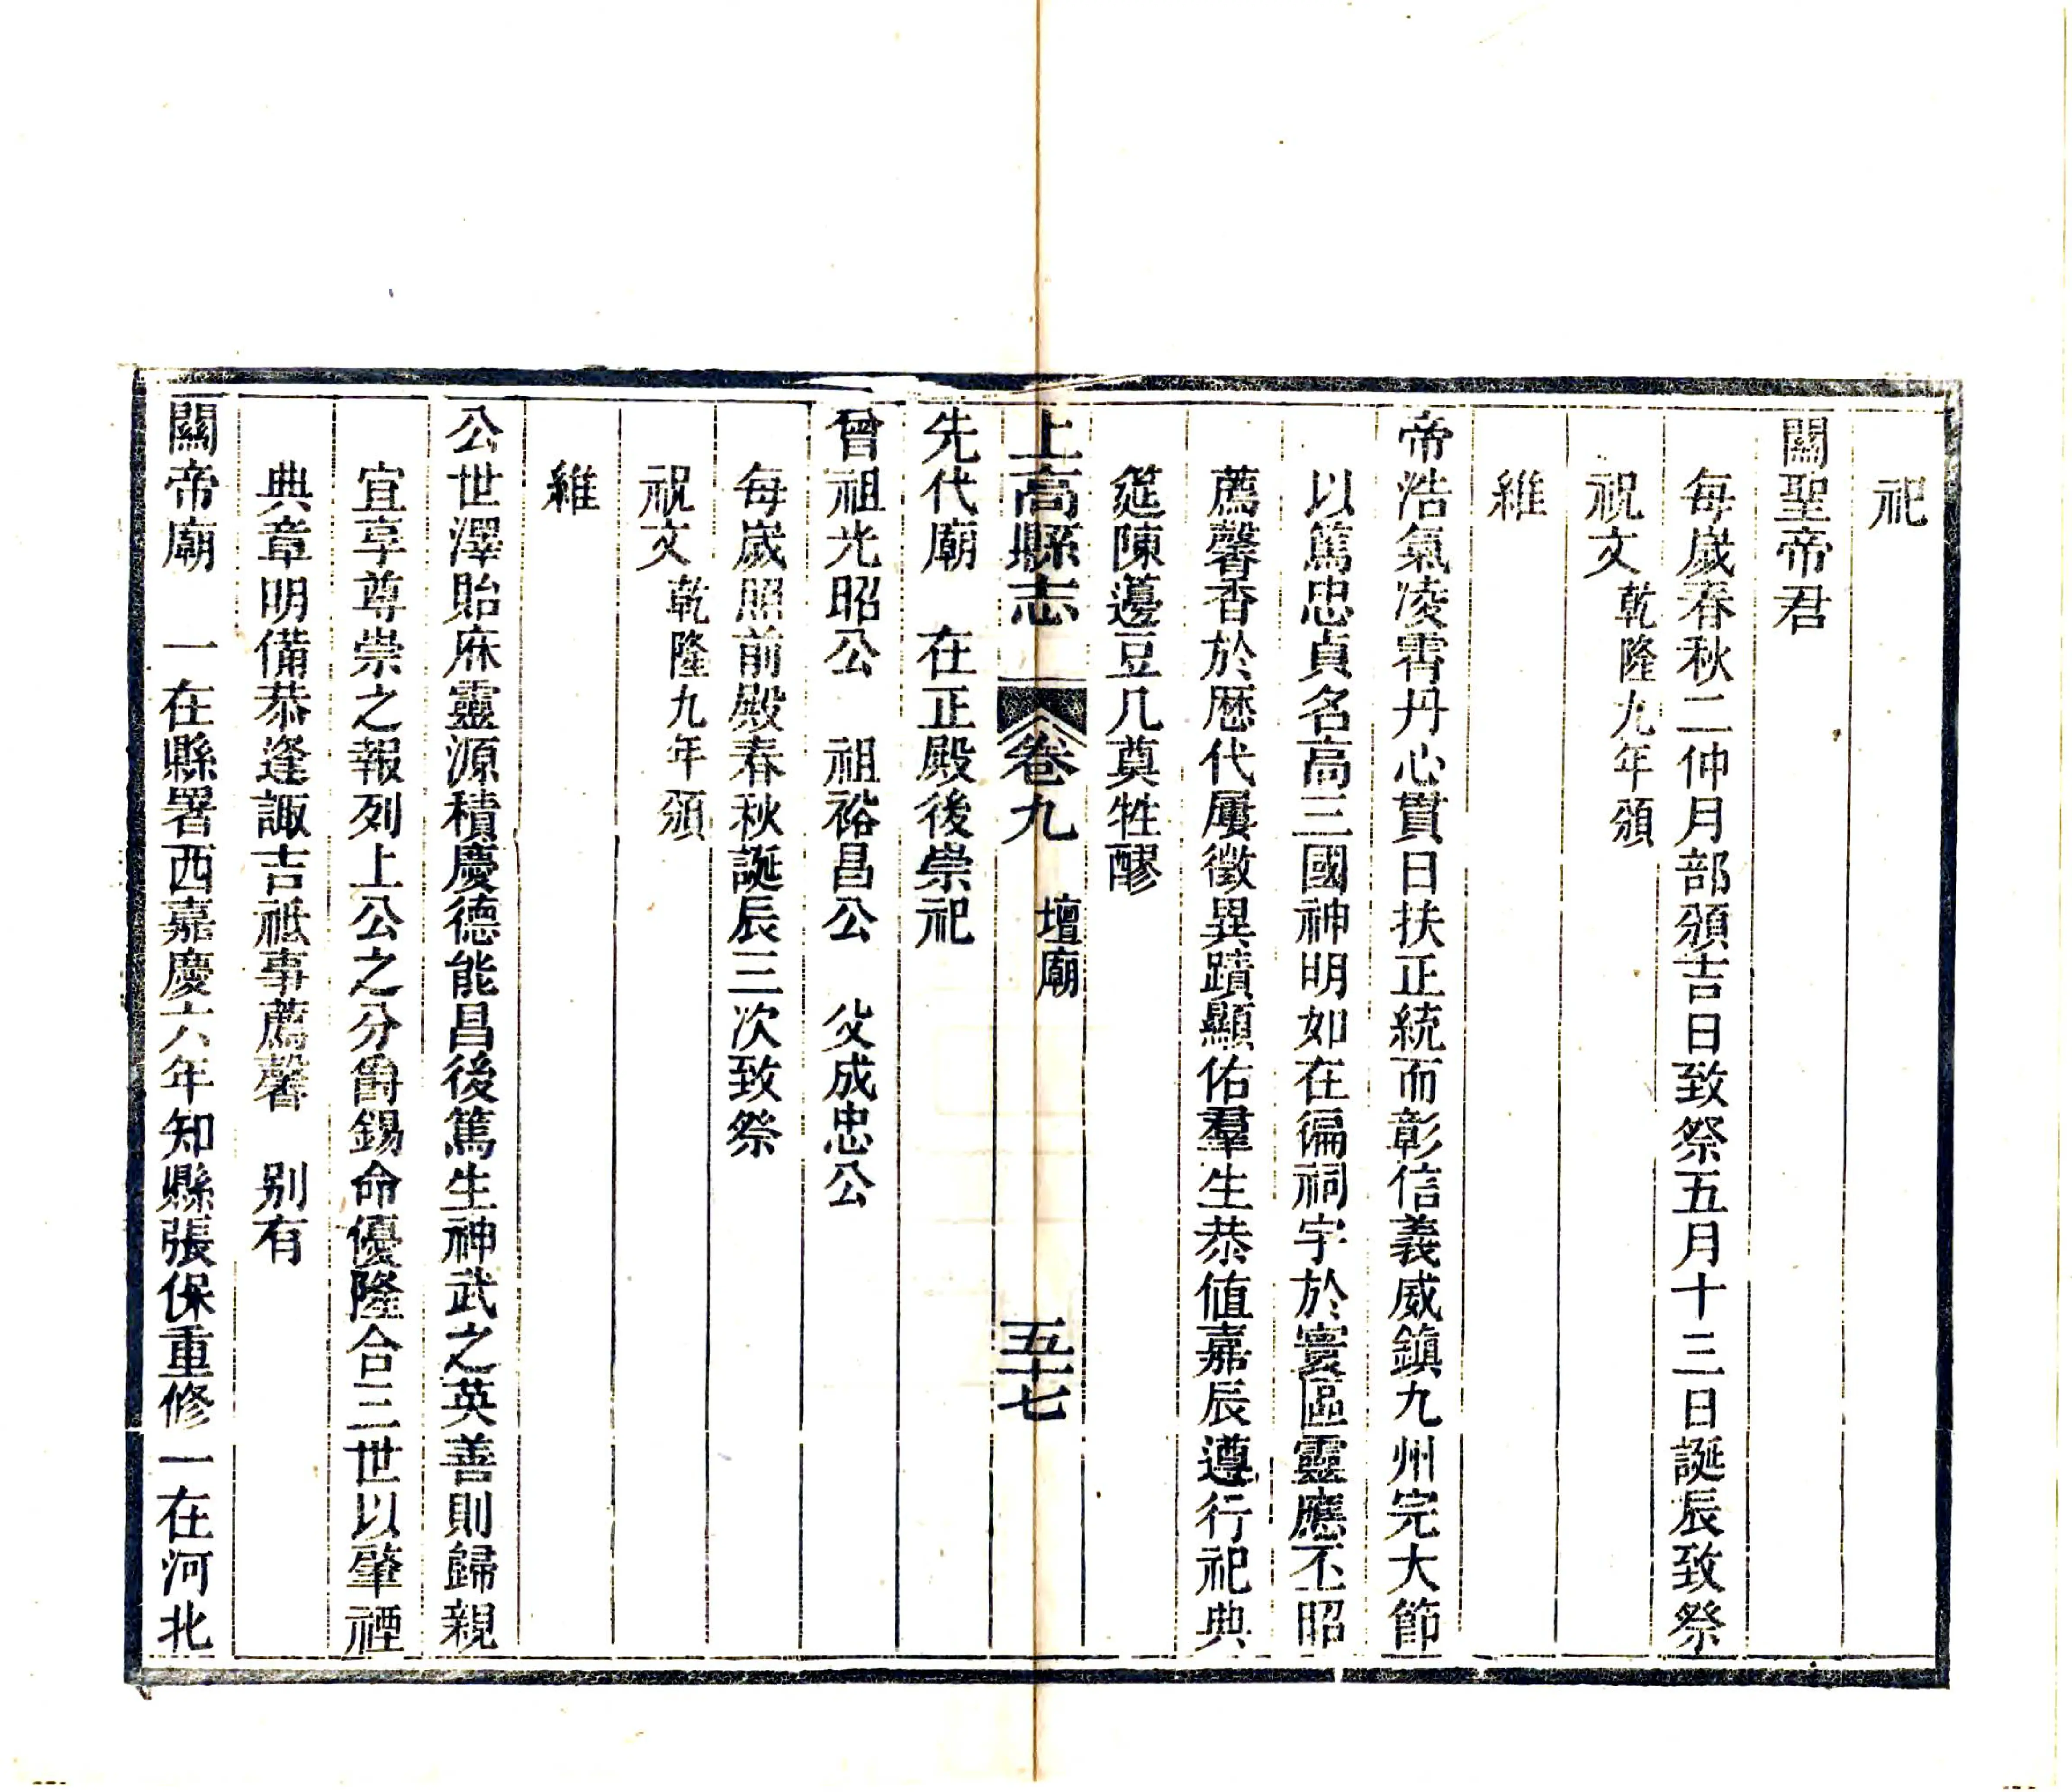 祀
關聖帝君
每歲春秋二仲月部頒吉日致祭五月十三日誕辰致祭
祝文乾隆九年頒
維
帝浩氣凌霄丹心貫日扶正統而彰信義威鎮九州完大節
以篤忠貞名高三國神明如在徧祠宇於寰區靈應丕昭
薦馨香於歷代屢徵異蹟顯佑羣生恭值嘉辰遵行祀典
筵陳籩豆几奠牲醪
上高縣志 卷九 壇廟 五十七
先代廟 在正殿後崇祀
曾祖光昭公 祖裕昌公 父成忠公
每歲照前殿春秋誕辰三次致祭
祝文乾隆九年頒
維
公世澤貽庥靈源積慶德能昌後篤生神武之英善則歸親
宜享尊崇之報列上公之分爵錫命優隆合三世以肇禋
典章明備恭逢諏吉祗事薦馨 别有
關帝廟 一在縣署西嘉慶六年知縣張保重修一在河北